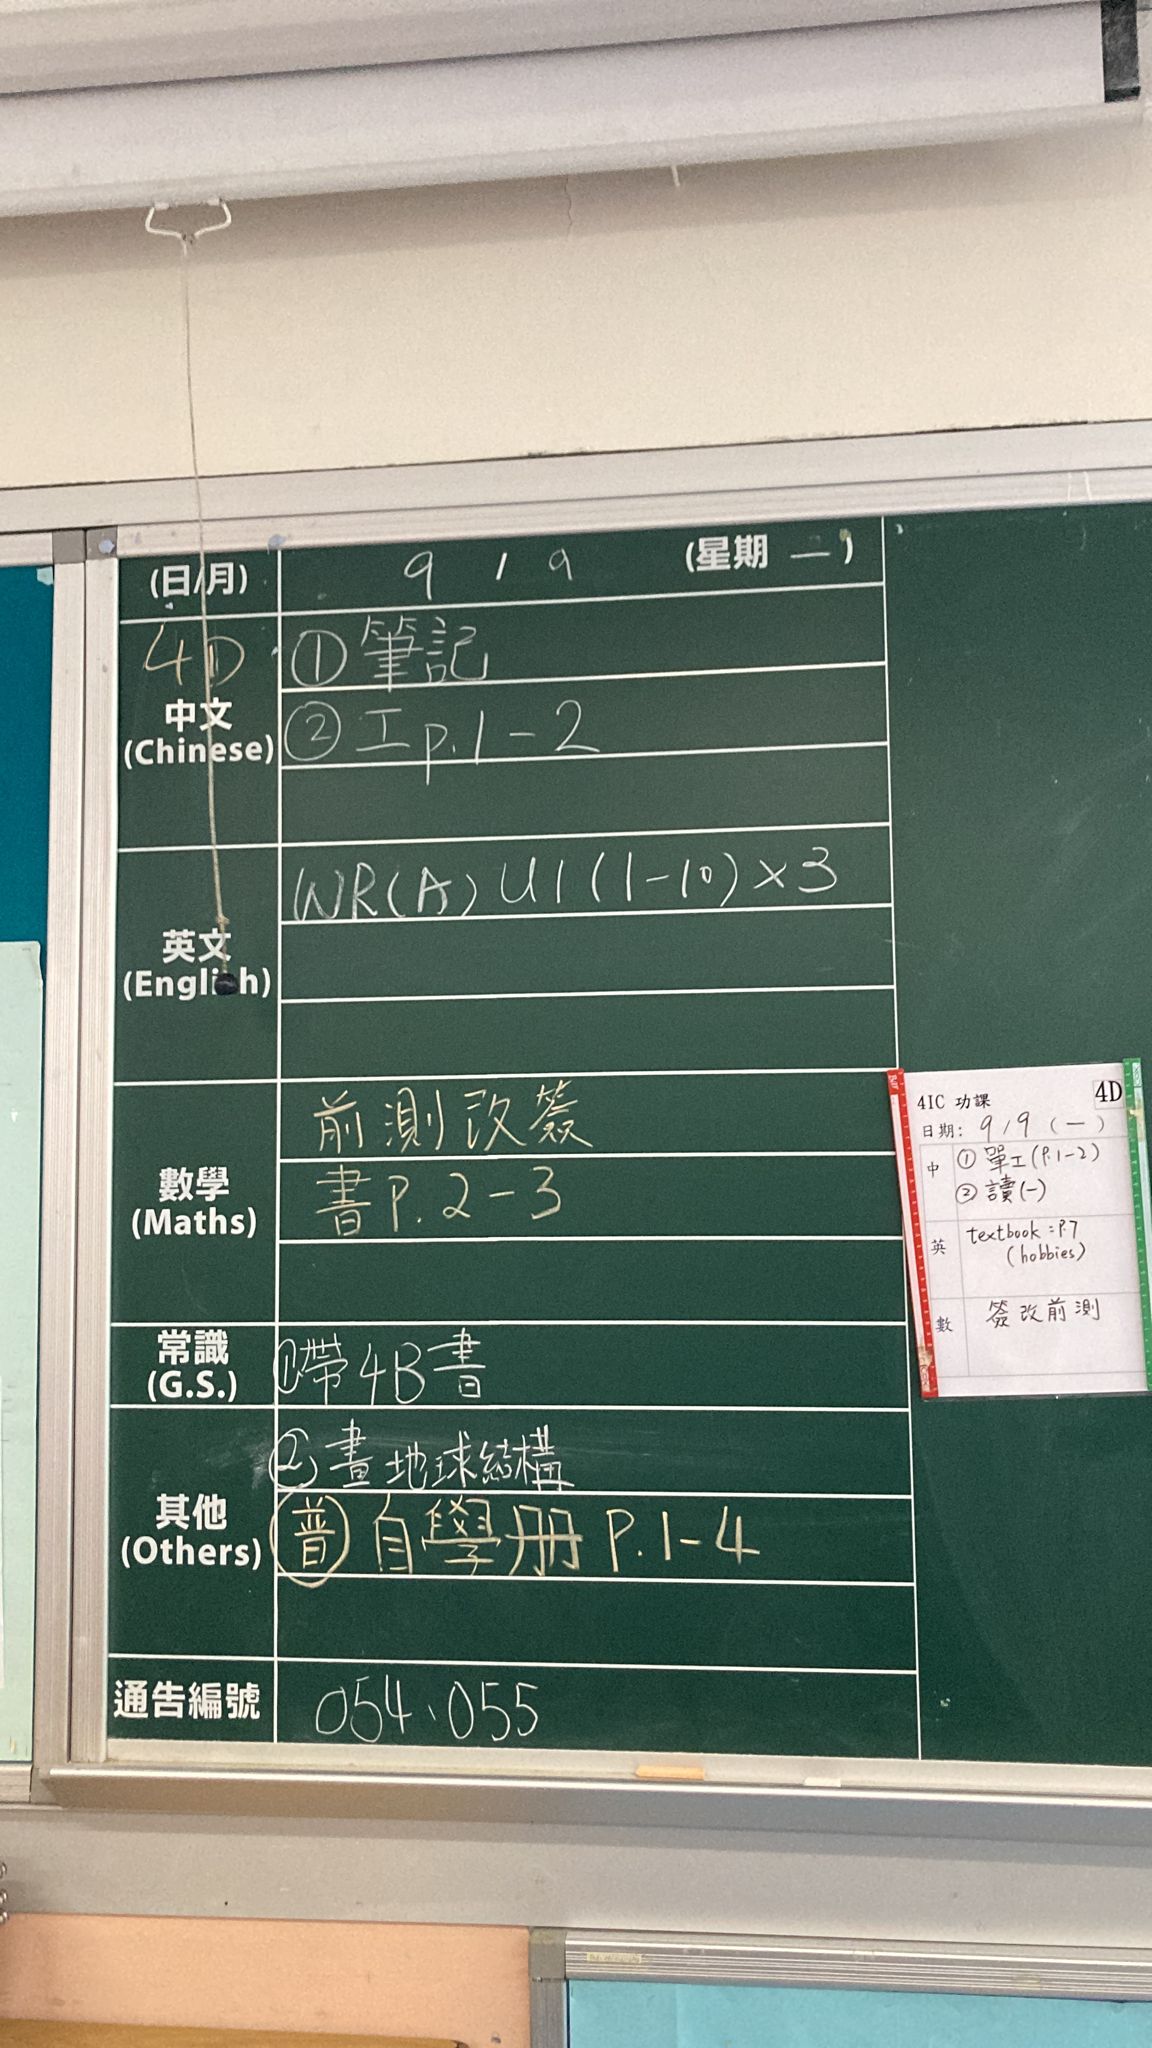 (日/月) 9 / 9 (星期 一)
4D ①筆記
中文
(Chinese)
②工p.1-2
WR(A) U1 (1-10) ×3
英文
(English)
前測改簽
數學
(Maths)
書P.2-3
常識
(G.S.)
①帶4B書
②畫地球結構
其他
(Others)
(普)自學册 P.1-4
通告編號 054、055
4IC 功課 4D
日期: 9 / 9 (一)
中 ① 單工(P.1-2)
② 讀(一)
英 textbook : P.7
(hobbies)
數 簽改前測